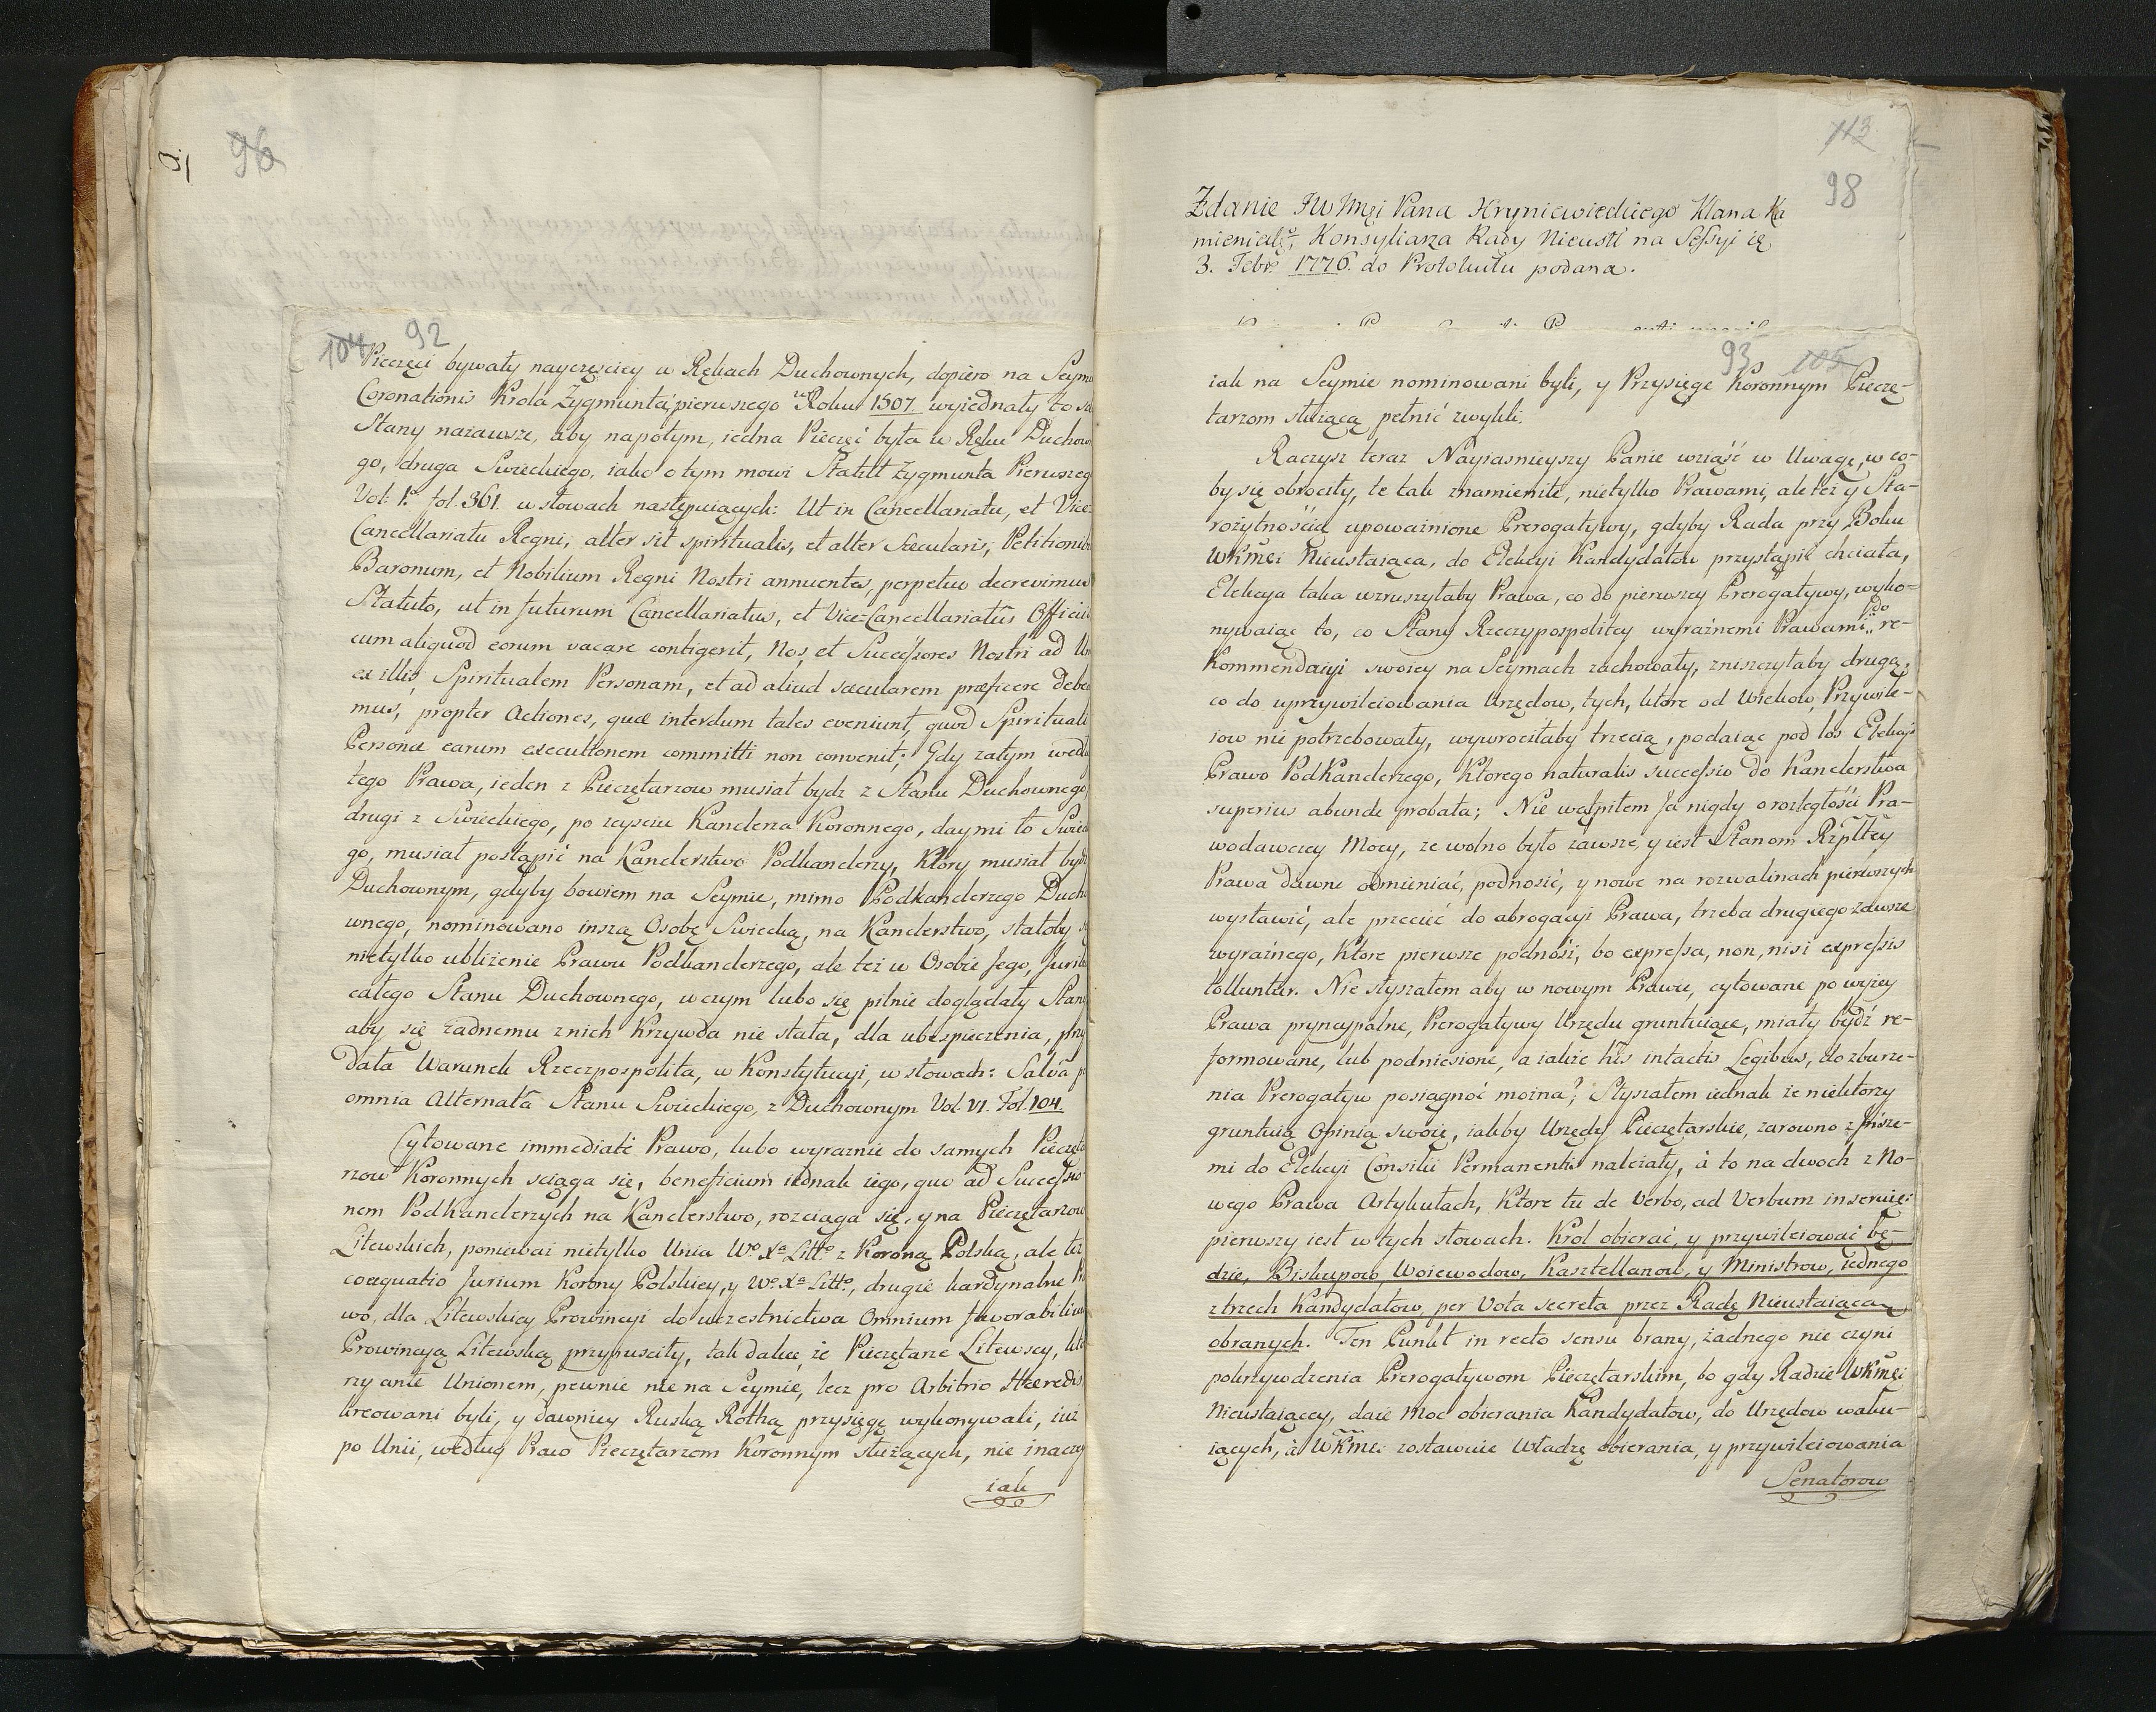 96
104 92
Pieczęci bywały nayczęściey w Rękach Duchownych, dopiero na Seym
Coronationis Krola Zygmunta pierwszego w Roku 1507. wyiednały to
Stany nazawsze, aby napotym, iedna Pieczęć była w Ręku Duchow
go, druga Swieckiego, iako o tym mowi Statut Zygmunta Pierwszeg
Vol: 1o fol. 361. w słowach następuiących: Ut in Cancellariatu, et Vice-
Cancellariatu Regni, alter sit spiritualis, et alter Sæcularis, Petitioni
Baronum, et Nobilium Regni Nostri annuentes, perpetuo decrevimus
Statuto, ut in futurum Cancellariatus, et Vice-Cancellariatûs Officii
cum aliquod eorum vacare contigerit, Nos, et Successores Nostri ad
ex illis, Spiritualem Personam, et ad aliud sæcularem præficere debe
mus, propter Actiones, quæ interdum tales eveniunt, quod Spirituali
Personæ earum executionem committi non convenit; Gdy zatym wedł
tego Prawa, ieden z Pieczętarzow musiał bydz z Stanu Duchownego
drugi z Swieckiego, po zeysciu Kanclerza Koronnego, daymi to Swiec
go, musiał postąpić na Kanclerstwo Podkanclerzy, Ktory musiał bydz
Duchownym, gdyby bowiem na Seymie, mimo Podkanclerzego Ducho
wnego, nominowano inszą Osobę Swiecką, na Kanclerstwo, stałoby
nietylko ubliżenie Prawu Podkanclerzego, ale też w Osobie Jego, Juri
całego Stanu Duchownego, w czym lubo się pilnie doglądały Stan
aby się żadnemu z nich Krzywda nie stała, dla ubespieczenia, prz
dała Warunek Rzeczpospolita, w Konstytucyi, w słowach: Salvâ p
omnia Alternatâ Stanu Swieckiego, z Duchownym Vol. VI. Fol. 104.
Cytowane immediatè Prawo, lubo wyraznie do samych Pieczęta
rzow Koronnych sciąga się, beneficium iednak iego, quo ad Successio
nem PodKanclerzych na Kanclerstwo, rozciąga się, y na Pieczętarzow
Litewskich, ponieważ nietylko Unia Wo Xa Litto z Koroną Polską, ale też
coæquatio Jurium Korony Polskiey, y Wo Xa Litto, drugie kardynalne
wo, dla Litewskiey Prowincyi do uczestnictwa Omnium favorabilium
Prowincyą Litewską przypuscity, tak dalece, że Pieczętarze Litewscy, któ
rzy ante Unionem, pewnie nie na Seymie, lecz pro Arbitrio Hæredis
kreowani byli, y dawniey Ruską Rothą przysięgę wykonywali, iuż
po Unii, według Praw Pieczętarzom Koronnym służących, nie inaczey
iak
113
98
Zdanie JW Jmci Pana Hryniewieckiego Klana Ka
mienieckgo, Konsyliarza Rady Nieustt na Sessyi ię
3. Febr. 1776. do Protokułu podana.
93 105
iak na Seymie nominowani byli, y Przysięge Koronnym Pieczę-
tarzom służącą, pełnić zwykli.
Raczysz teraz Nayiasnieyszy Panie wziąść w Uwagę, w co-
by się obrociły, te tak znamienite, nietylko Prawami, ale też y Sta-
rożytnością upoważnione Prerogatywy, gdyby Rada przy Boku
WKMci Nieustaiąca, do Elekcyi Kandydatow przystąpić chciała,
Elekcya taka wzruszyłaby Prawa, co do pierwszey Prerogatywy, wyko-
nywaiąc to, co Stany Rzeczypospolitey wyraźnemi Prawami do re-
kommendacyi swoiey na Seymach zachowały, zniszczyłaby drugą,
co do uprzywileiowania Urzędow, tych, ktore od Wiekow, Przywile-
iow nie potrzebowały, wywrociłaby trzecią, podaiąc pod los Elekcyi
Prawo PodKanclerzego, Ktorego naturalis successio do Kanclerstwa
superius abunde probata; Nie wąpiłem Ja nigdy o rozległości Pra-
wodawczey Mocy, że wolno było zawsze, y iest Stanom Rzpltey
Prawa dawne odmieniać, podnosić, y nowe na rozwalinach pierwszych
wystawić, ale przecięć do abrogacyi Prawa, trzeba drugiego zawsze
wyraźnego, Ktore pierwsze podnosi, bo expressa, non, nisi expressis
tolluntur. Nie słyszałem aby w nowym Prawie, cytowane powyżey
Prawa pryncypalne, Prerogatywy Urzędu gruntuiące, miały bydź re-
formowane, lub podniesione, a iakże his intactis Legibus, do zburze-
nia Prerogatyw posiągnoć można? Słyszałem iednak że niektorzy
gruntuią Opinią swoię, iakby Urzędy Pieczętarskie, zarowno z insze-
mi do Elekcyi Consilii Permanentis należały, à to na dwoch z No-
wego Prawa Artykułach, Ktore tu de Verbo, ad Verbum inseruię:
pierwszy iest w tych słowach. Krol obierać, y przywileiować bę-
dzie, Biskupow, Woiewodow, Kasztellanow, y Ministrow, iednego
z trzech Kandydatow, per Vota secreta przez Radę Nieustaiącą
obranych. Ten Punkt in recto sensu brany, żadnego nie czyni
pokrzywdzenia Prerogatywom Pieczętarskim, bo gdy Radzie WKMci
Nieustaiącey, daie Moc obierania Kandydatow, do Urzędow waku-
iących, à WKMci zostawuie Władzę obierania, y przywileiowania
Senatorow